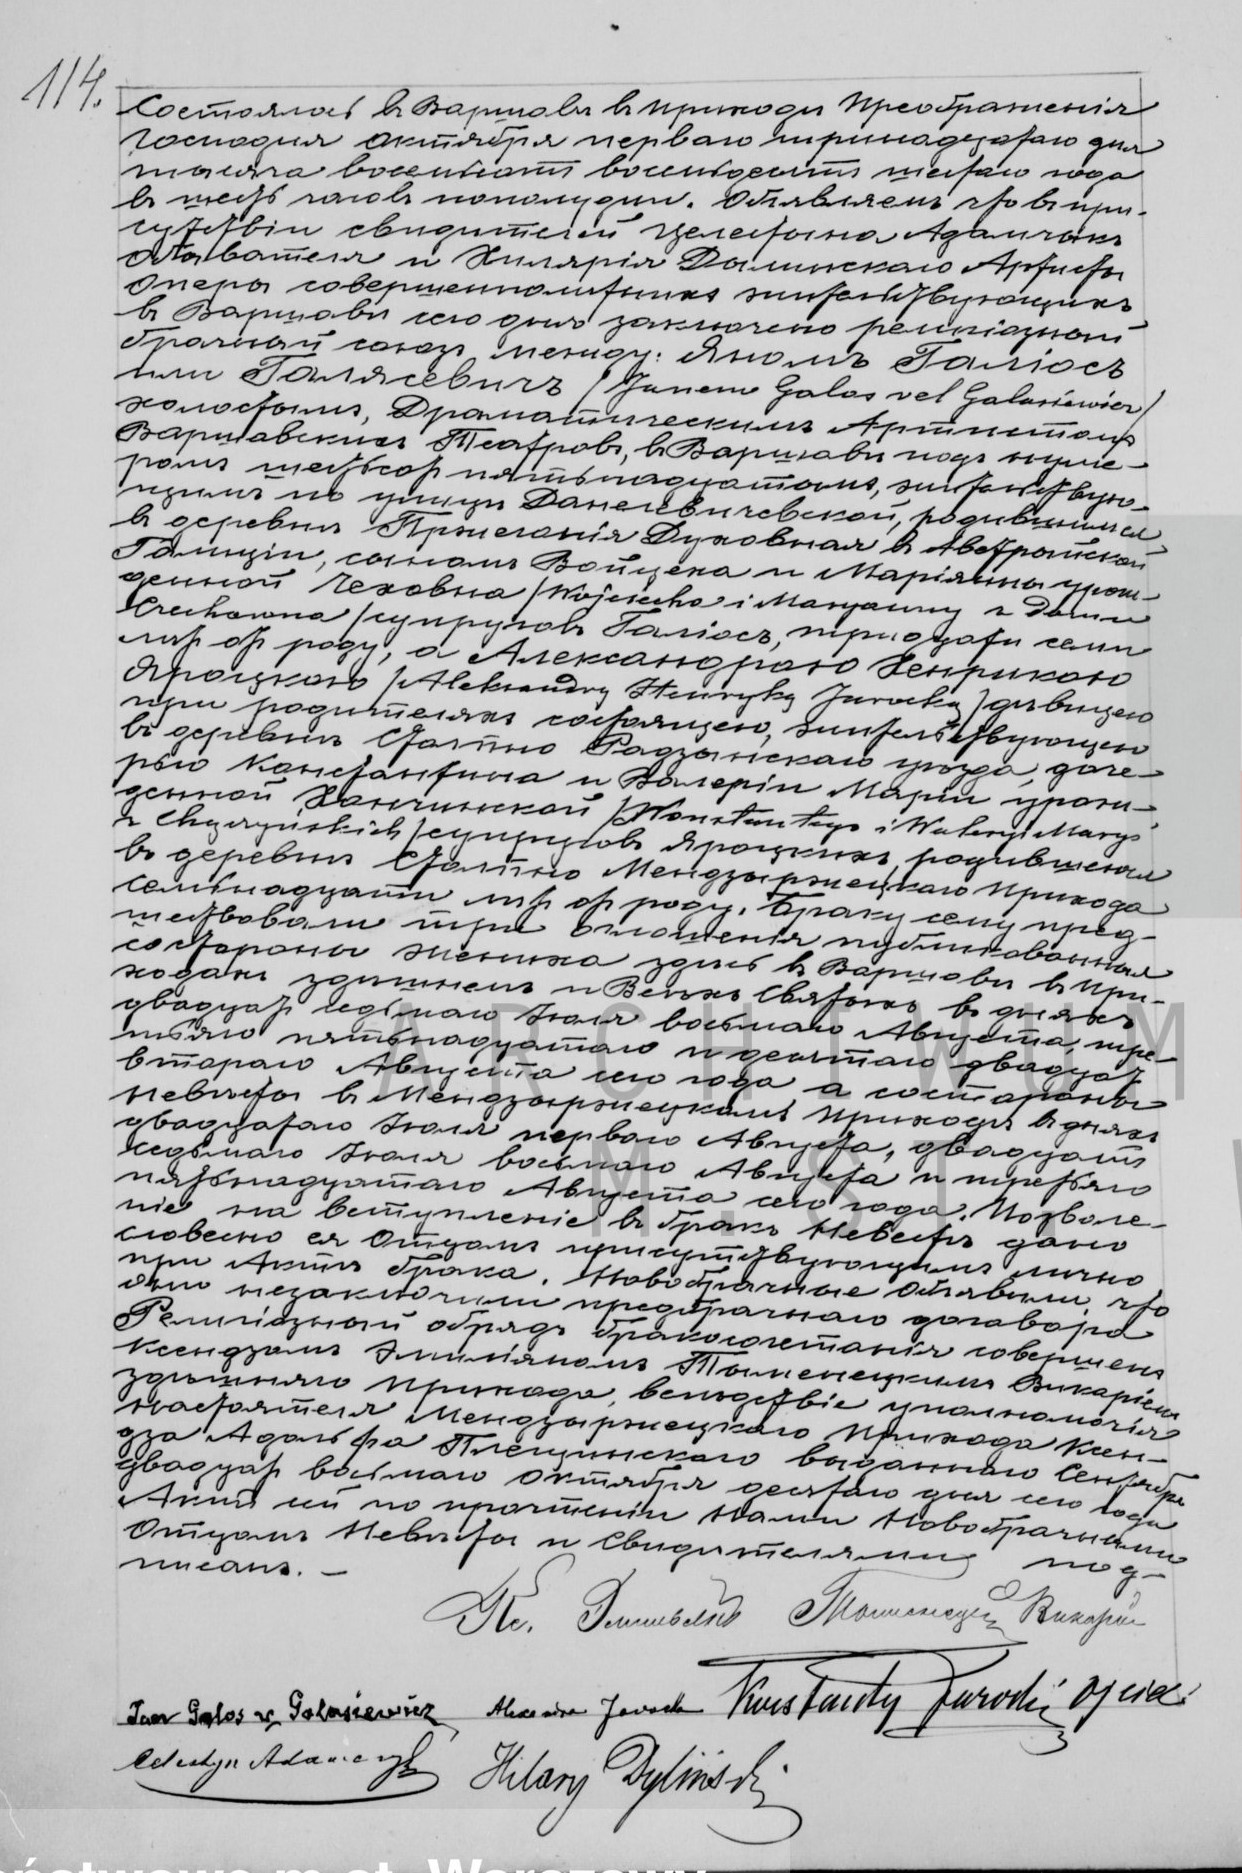 114.
Состоялось въ Варшавѣ въ приходѣ Преображенія
Господня Октября перваго тринадцатаго дня
тысяча восемьсотъ восемьдесятъ шестаго года
въ шесть часовъ пополудни. Объявляемъ что въ при-
сутствіи свидѣтелей Целестына Адамчикъ
и Хилярія Дылинскаго Артисты
Оперы совершеннолѣтнихъ жительствующихъ
въ Варшавѣ сего дня заключено религіозный
брачный союзъ между: Яномъ Галіосъ
или Галясевичъ /Janem Galos vel Galasiewicz/
холостымъ, Драматическимъ Артистомъ
Варшавскихъ Театровъ, въ Варшавѣ подъ нуме-
ромъ шестьсотъ пятьнадцатомъ, жительствую-
щимъ по улицѣ Данелевичевской, родившимся
въ деревнѣ Духовная въ Австрійской
Галиціи, сыномъ Войцеха и Маріянны урож-
денной Чеховна /Wojciecha i Maryanny z Domu
Czechowna/ супруговъ Галіосъ, тридцати семи
лѣтъ отъ роду, а Александрою Хенрикою
Яроцкою /Aleksandrą Henryką Jarocką/ дѣвицею
при родителяхъ состоящею, жительствующею
въ деревнѣ Радзынскаго уѣзда, доче-
рью Константина и Валеріи Маріи урож-
денной /Konstantego i Waleryi Maryi
z / супруговъ Яроцкихъ, родившеюся
въ деревнѣ Мендзыржецкаго прихода
семьнадцати лѣтъ отъ роду. Браку сему пред-
шествовали три оглошенія публикованныя
со стороны жениха здѣсь въ Варшавѣ въ при-
ходахъ здѣшнемъ и Всѣхъ Святыхъ въ дняхъ
двадцать седьмаго Іюля восьмаго Августа, тре-
тьяго пятьнадцатаго и десятаго двадцать
втораго Августа сего года а со стороны
невѣсты въ Мендзыржецкомъ приходѣ въ дняхъ
двадцатаго Іюля перваго Августа, двадцать
седьмаго Іюля восьмаго Августа и третьяго
пятьнадцатаго Августа сего года. Позволе-
ніе на вступленіе въ бракъ Невѣстѣ дано
словесно ея Отцомъ присутствующимъ лично
при Актѣ брака. Новобрачные объявили, что
они незаключили предбрачнаго договора
Религіозный обрядъ бракосочетанія совершенъ
Ксендзомъ Эмиліяномъ Викаріемъ
здѣшняго прихода, вслѣдствіе уполномочія
настоятеля Мендзыржецкаго прихода Ксен-
дза Адольфа Плещинскаго выданнаго Сентября
двадцать восьмаго Октября десятаго дня сего года
Актъ сей по прочтеніи Нами Новобрачными
Отцомъ Невѣсты и Свидѣтелями под-
писанъ. —
Кс. Викарій
Jan Galos v. Galasiewicz Jarocka Konstanty Jarocki ojciec.
Celestyn Adamczyk Hilary Dyliński
ARCHIWUM
M. ST. W
aństwowe m.st. Warszawy